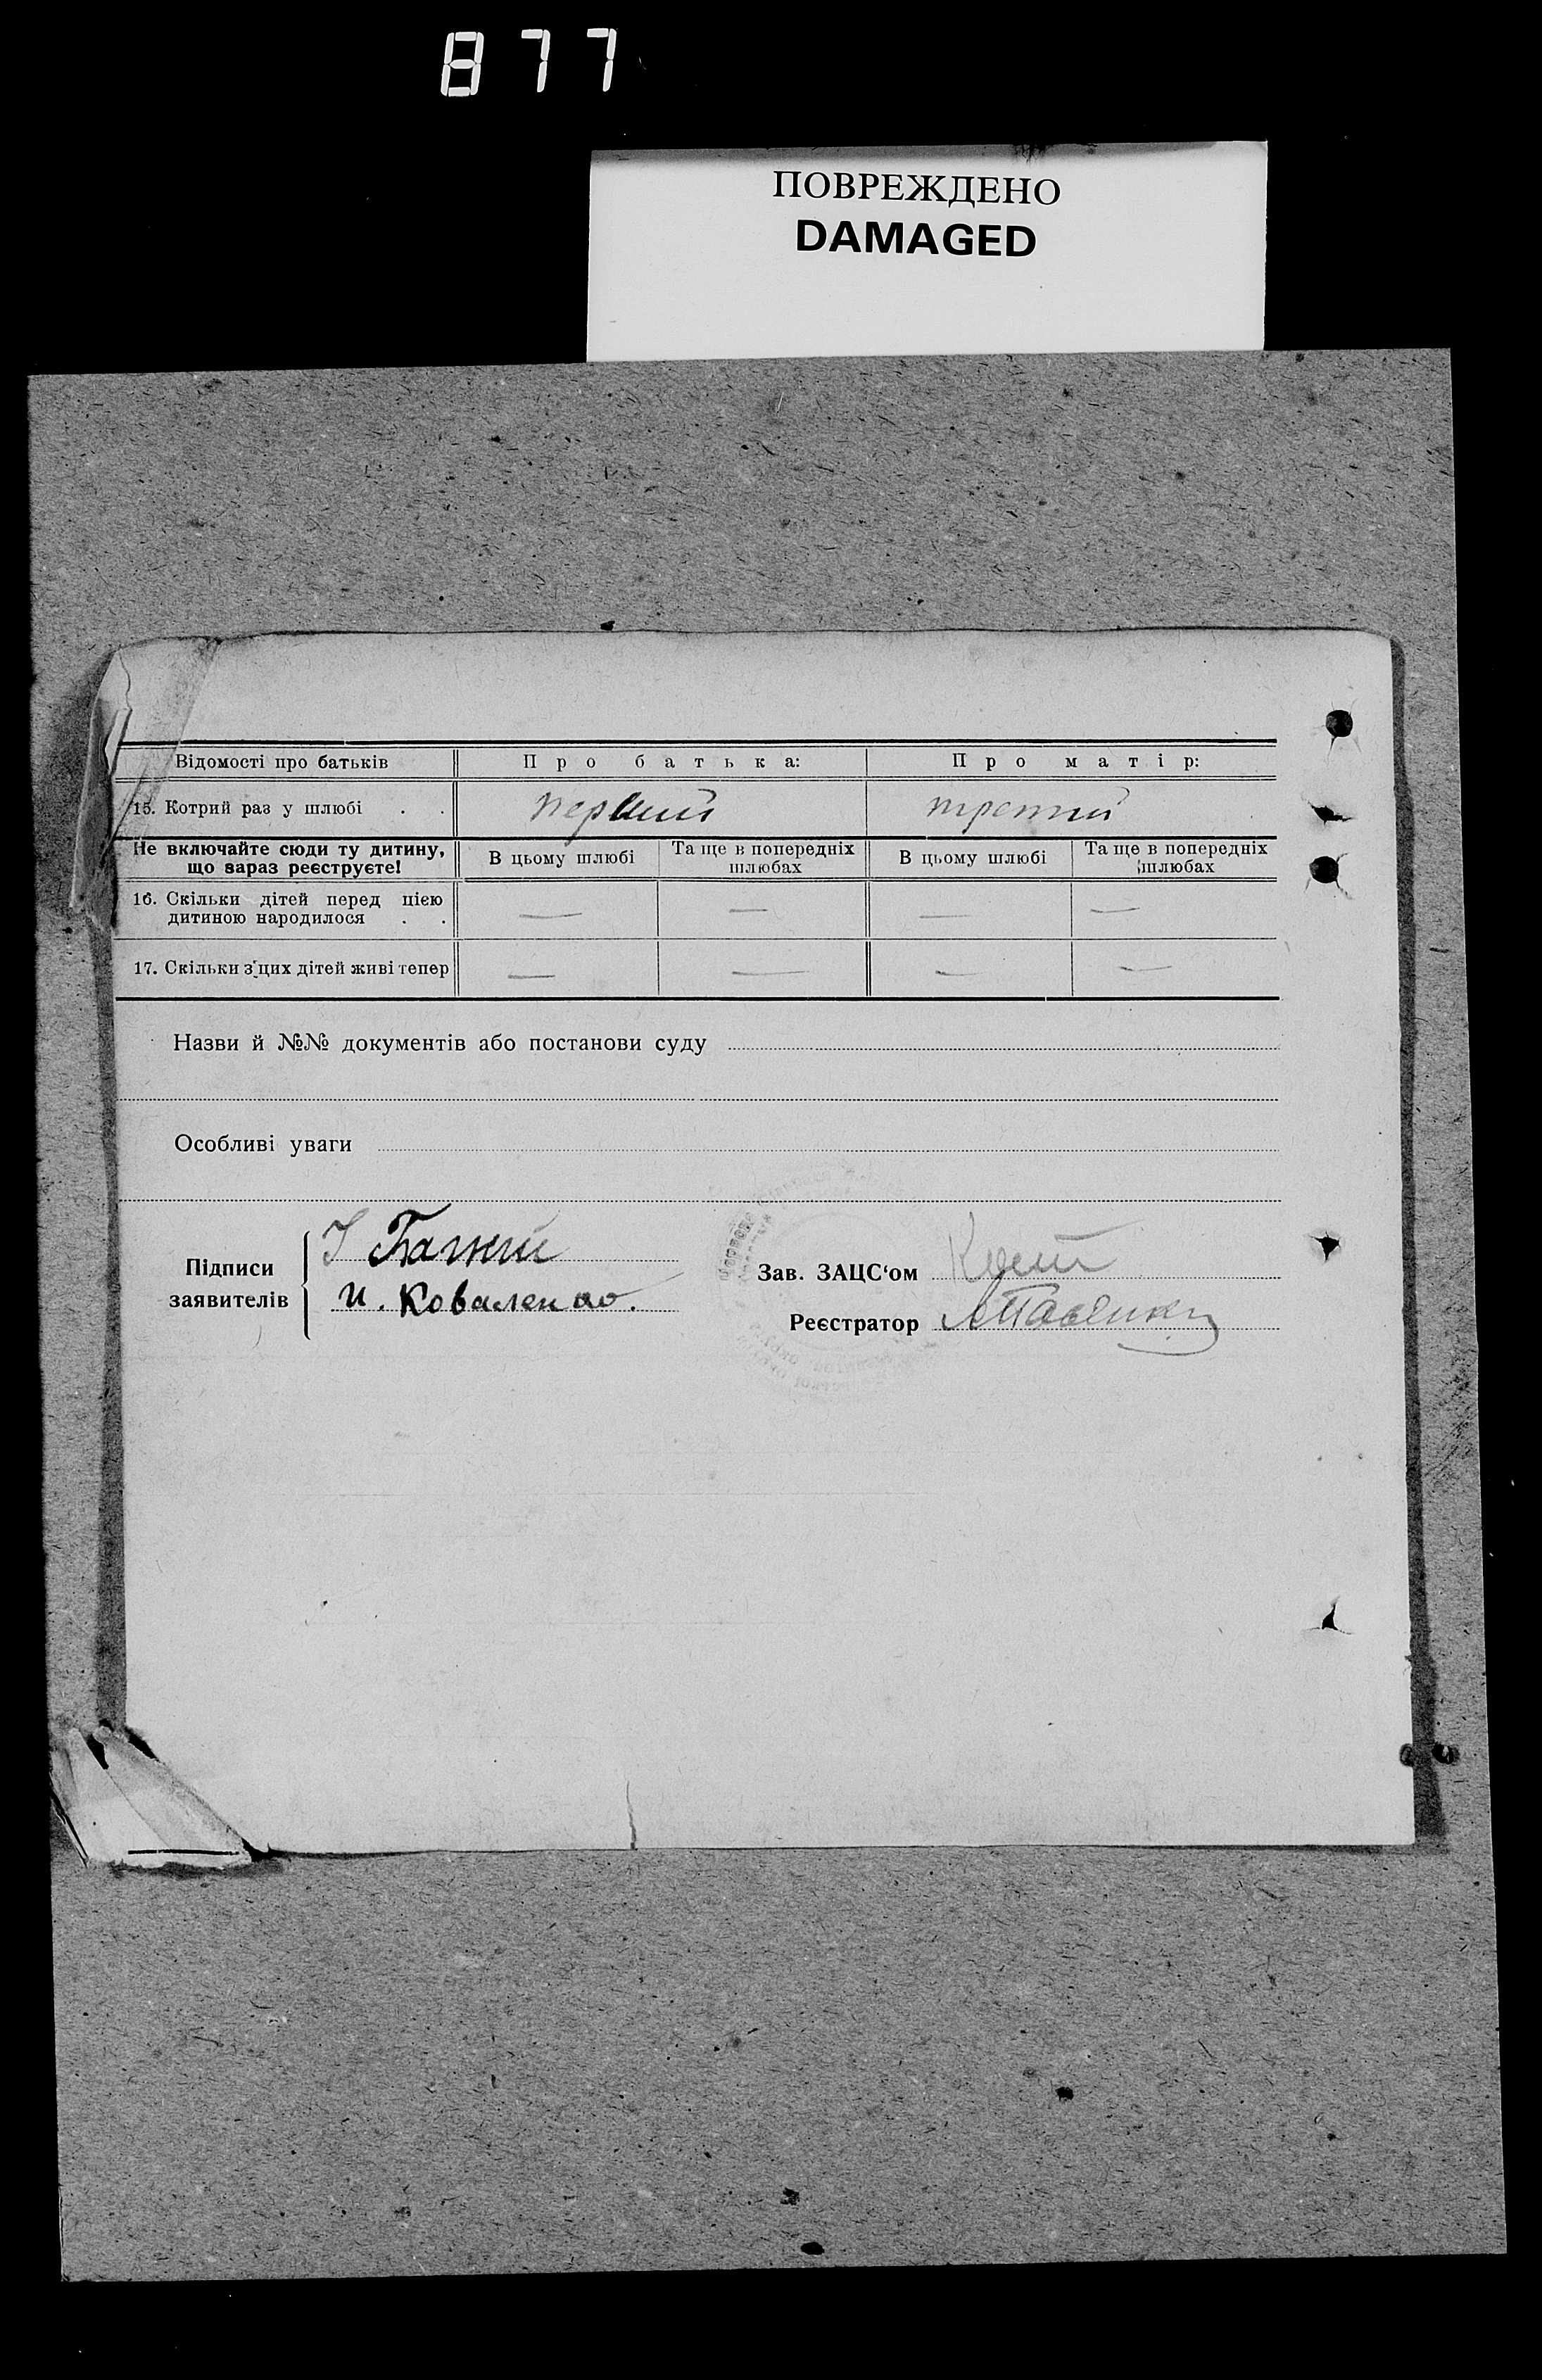 877
ПОВРЕЖДЕНО
DAMAGED
Відомості про батьків Про батька: Про матір:
15. Котрий раз у шлюбі . . первий третий
Не включайте сюди ту дитину, що зараз реєструєте! В цьому шлюбі Та ще в попередніх шлюбах В цьому шлюбі Та ще в попередніх шлюбах
16. Скільки дітей перед цією дитиною народилося . . — — — —
17. Скільки з цих дітей живі тепер — — — —
Назви й №№ документів або постанови суду
Особливі уваги
Підписи заявителів
И. Коваленко.
Зав. ЗАЦС‘ом
Реєстратор